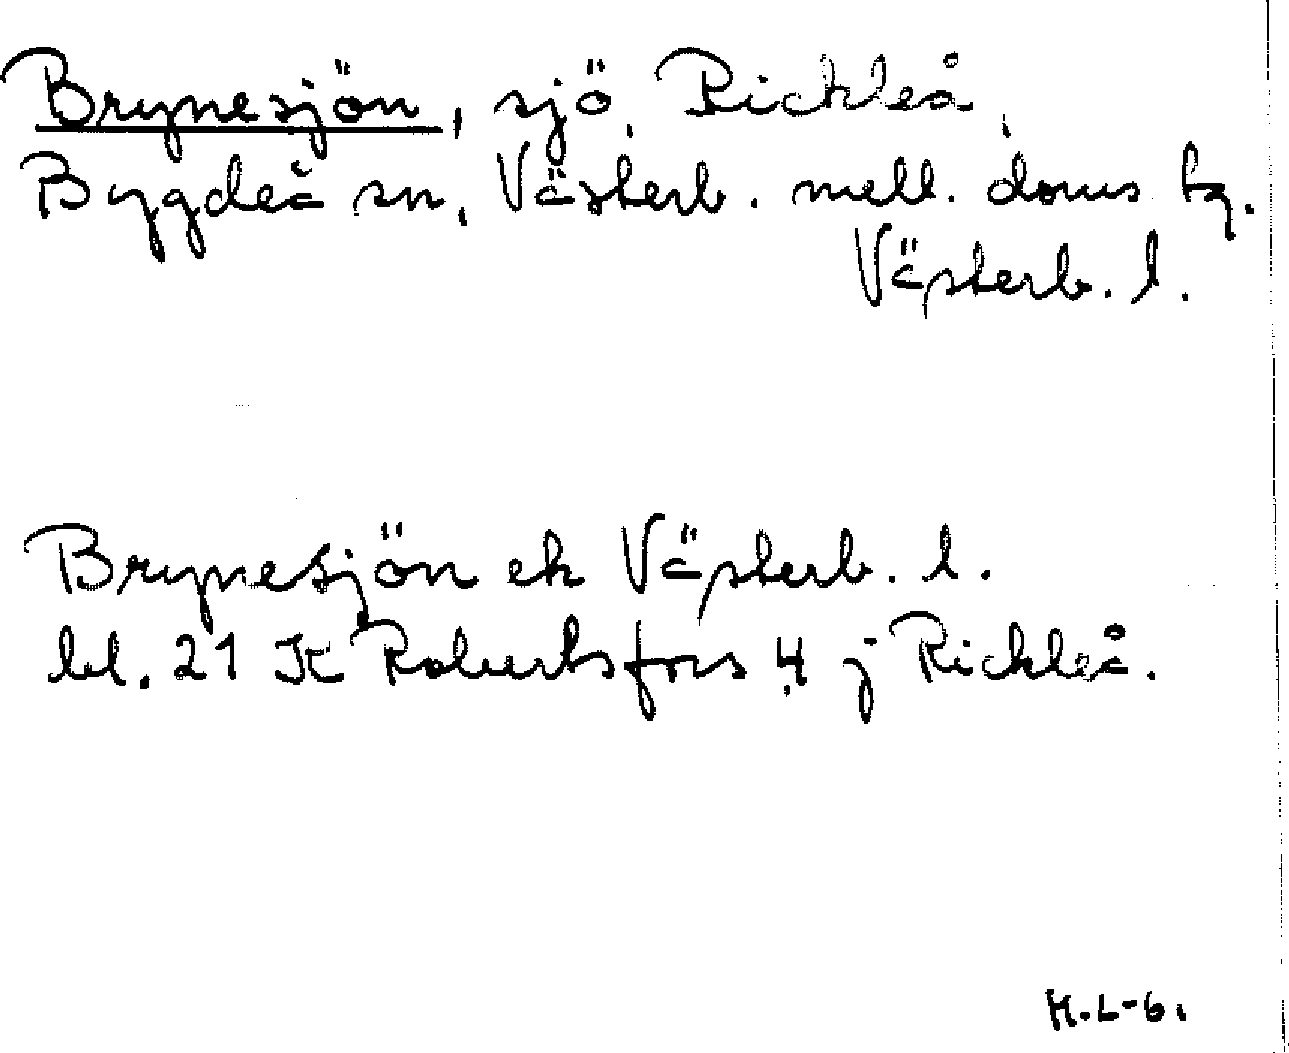 Brynesjön, sjö, Rickleå,
Bygdeå sn, Västerb. mell. doms tg.
Västerb. l.
Brynesjön ek Västerb. l.
bl. 21 K Robertsfors 4 j Rickleå.
H.L-6.